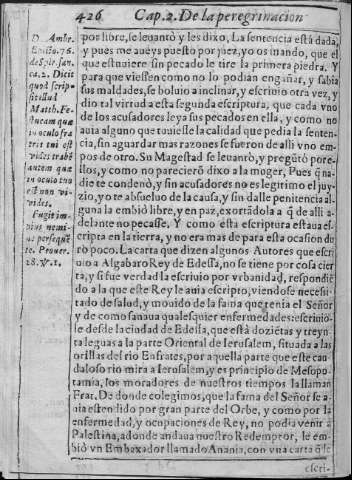 426 Cap.2. De la peregrinacion
pos libre, se leuantò y les dixo, La sentencia està dada,
y pues me aueys puesto por juez, yo os mando, que el
que estuuiere sin pecado le tire la primera piedra. Y
para que viessen como no lo podian engañar, y sabia
sus maldades, se boluio a inclinar, y escriuio otra vez, y
dio tal virtud a esta segunda escriptura, que cada vno
de los acusadores leya sus pecados en ella, y como no
auia alguno que tuuiesse la calidad que pedia la senten-
cia, sin aguardar mas razones se fueron de alli vno em-
pos de otro. Su Magestad se leuantò, y pregũtò por e-
llos, y como no parecierõ dixo a la moger, Pues q̃ na-
die te condenò, y sin acusadores no es legitimo el juy-
zio, yo te absueluo de la causa, y sin dalle penitencia al-
guna la embiò libre, y en paz, exortãdola a q̃ de alli a-
delante no pecasse. Y como esta escriptura estaua es-
cripta en tierra, y no era mas de para esta ocasion du
rò poco. La carta que dizen algunos Autores que escri
uio a Algabaro Rey de Edessa, no se tiene por cosa cier
ta, y si fue verdad la escriuio por vrbanidad, respondiẽ
do a la que este Rey le auia escripto, viendose necessi-
tado de salud, y mouido de la fama que tenia el Señor
y de como sanaua qualesquier enfermedades: escriuio-
le desde la ciudad de Edessa, que està doziẽtas y treyn-
ta leguas a la parte Oriental de Ierusalem, situada a las
orillas del rio Eufrates, por aquella parte que este cau-
daloso rio mira a Ierusalem, y es principio de Mesopo-
tamia, los moradores de nuestros tiempos la llaman
Frat. De donde colegimos, que la fama del Señor se a-
uia estendido por gran parte del Orbe, y como por la
enfermedad, y ocupaciones de Rey, no podia venir a
Palestina, adonde andaua nuestro Redemptor, le em-
biò vn Embaxador llamado Anania, con vna carta q̃ le
escri-
D. Ambr.
Epist. 76.
de Spir. san.
ca. 2. Dicit
quod scrip-
sit illud
Matth. Fe-
stucam quæ
in oculo fra
tris tui est
vides trabẽ
autem quæ
in oculo tuo
est non vi-
vides.
Fugit im-
pius nemi-
ne persequẽ
te. Prouer.
28. ℣. 1.